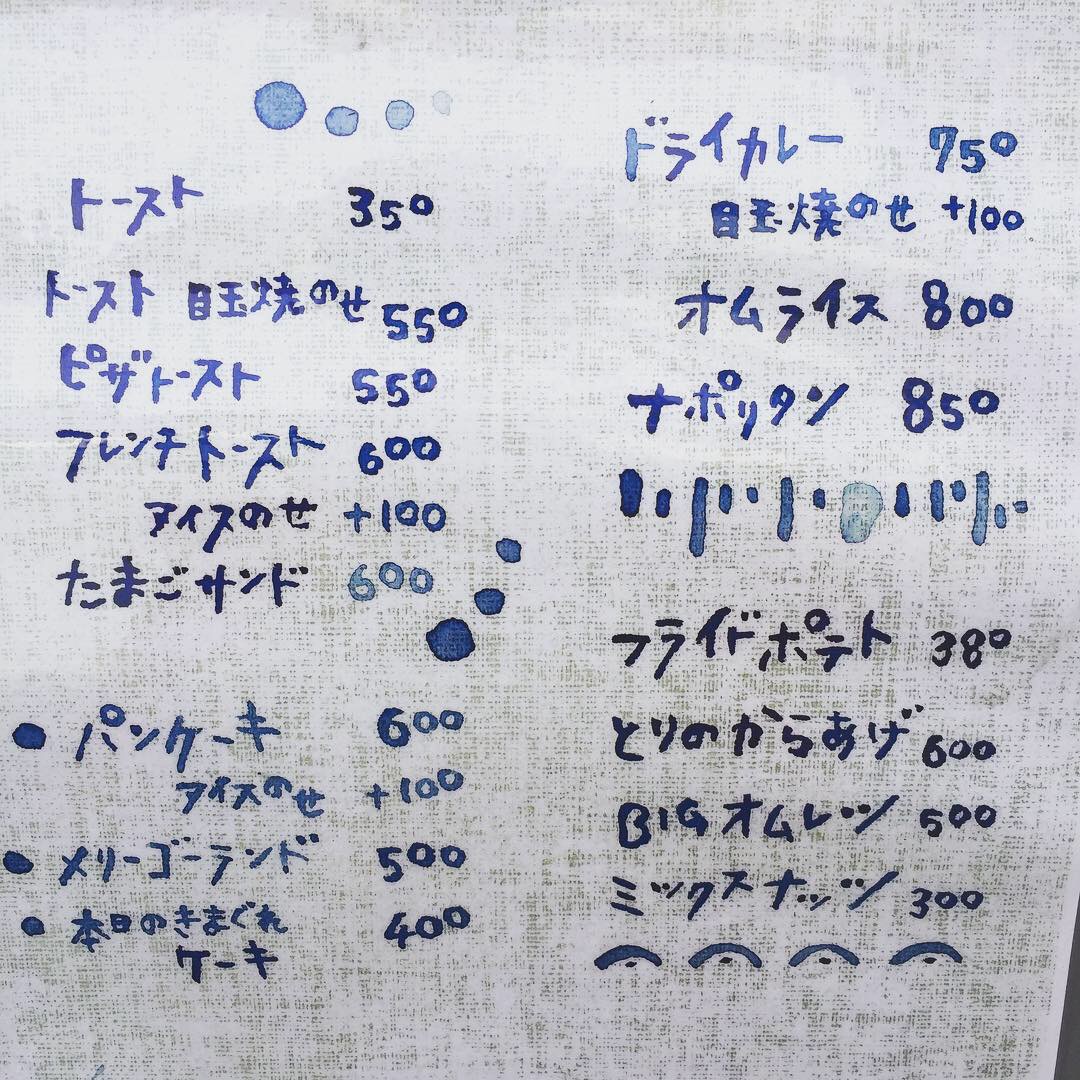 トースト 350
トースト 目玉焼のせ 550
ピザトースト 550
フレンチトースト 600
アイスのせ +100
たまごサンド 600
パンケーキ 600
アイスのせ +100
メリーゴーランド 500
本日のきまぐれ 400
ケーキ
ドライカレー 750
目玉焼のせ +100
オムライス 800
ナポリタン 850
フライドポテト 380
とりのからあげ 600
BIGオムレツ 500
ミックスナッツ 300